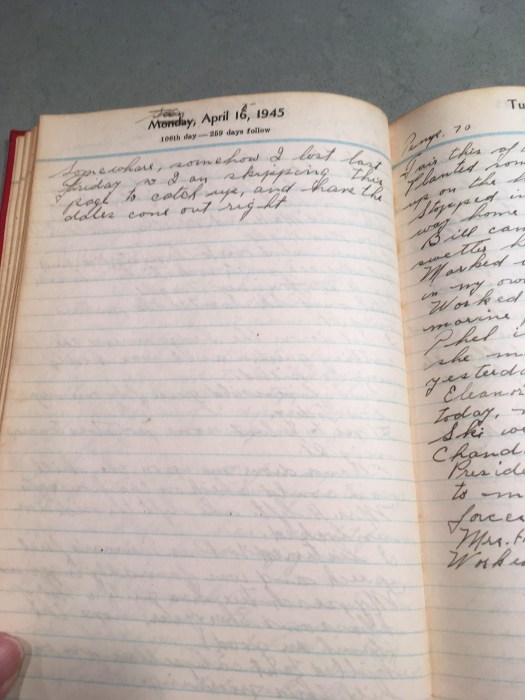 Monday, April 16, 1945
106th day — 259 days follow
Somewhare, somehow I lost last
Sunday so I am skipping this
page to catch up, and have the
dates come out right
Tu
Temp. 70
Fair this
Planted
up on the
Stopped in
way home
Bill
Marked
in my
Worked
marine
Phel
she
yesterda
Eleanor
today,
Ski
Chand
Presid
to
forces
Mrs.
Worke